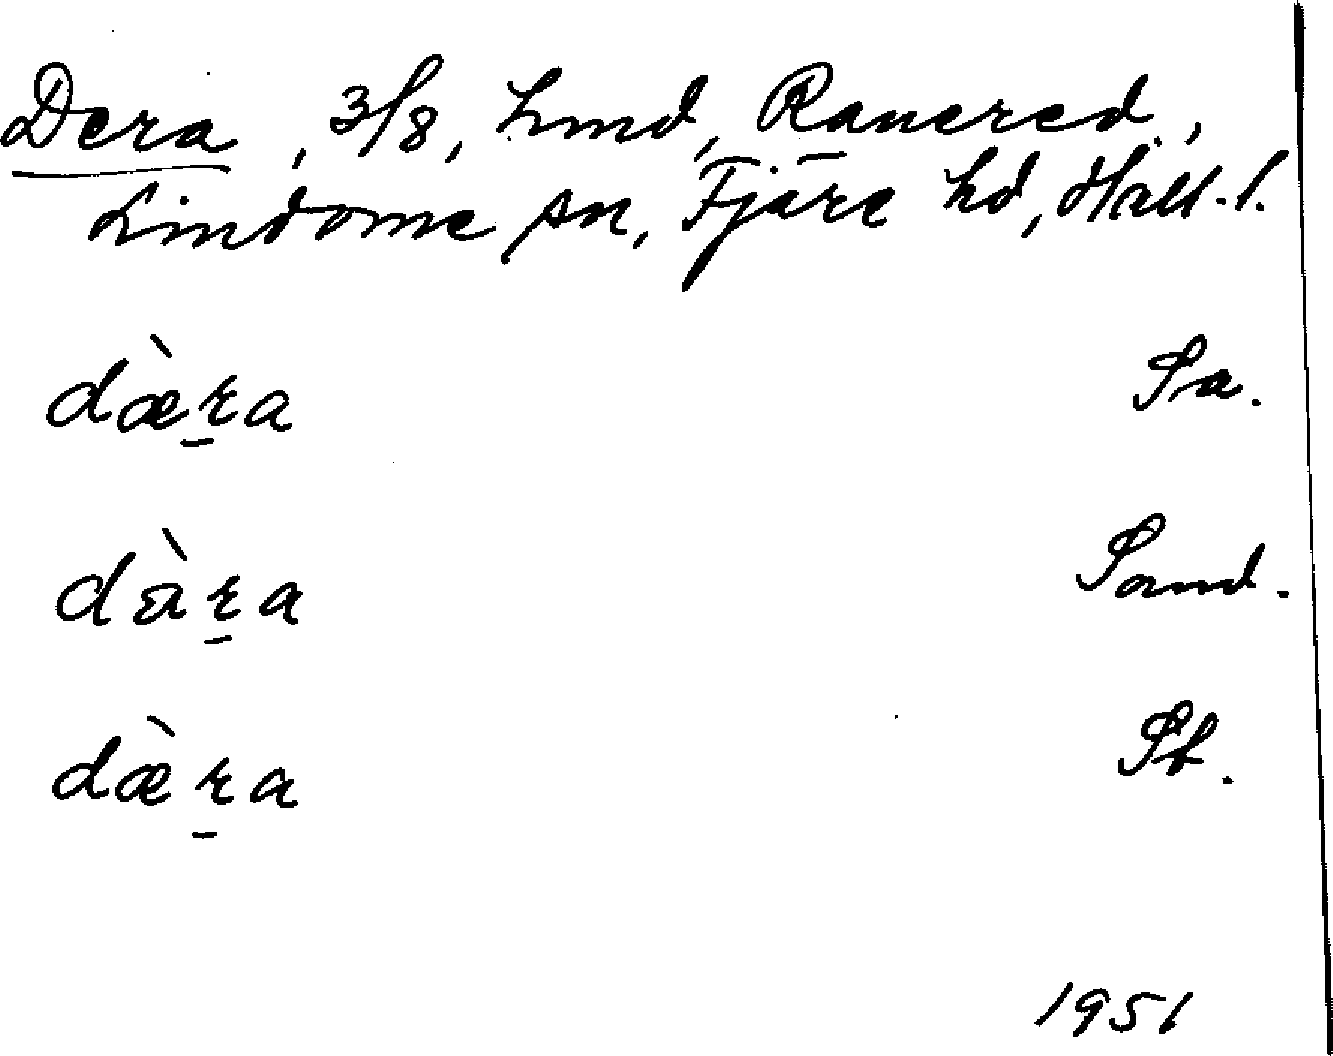 Dera, 3/8, hmd, Ranered,
Lindome sn, Fjäre hd, Hall. l.
dæ̀ṟa Sa.
dàṟa Sand.
dæ̀ṟa St.
1951